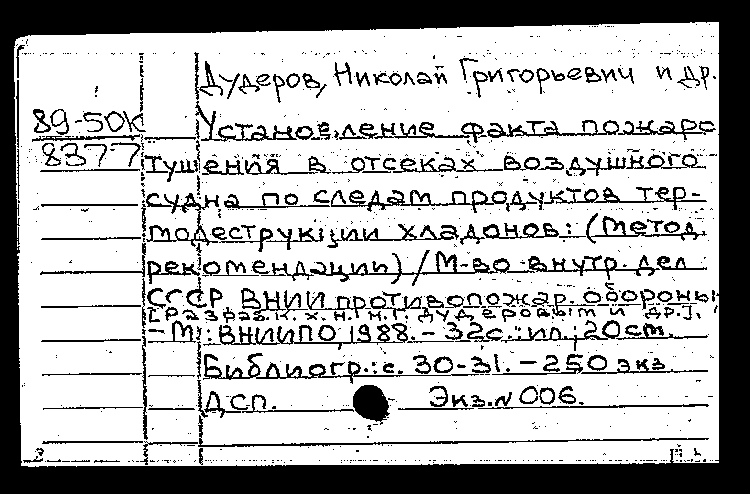 Дудеров, Николай Григорьевич и др.
89-50К Установление факта пожаро
8377 тушения в отсеках воздушного
судна по следам продуктов тер-
модеструкции хладонов: (Метод.
рекомендации) / М-во внутр. дел
СССР, ВНИИ противопожар. обороны
[разраб. к. х. н. Н. Г. Дудеровым и др.],
- М.: ВНИИПО, 1988. - 32с.: ил.; 20см.
Библиогр.: с. 30-31. - 250 экз.
ДСП. Экз. № 006.